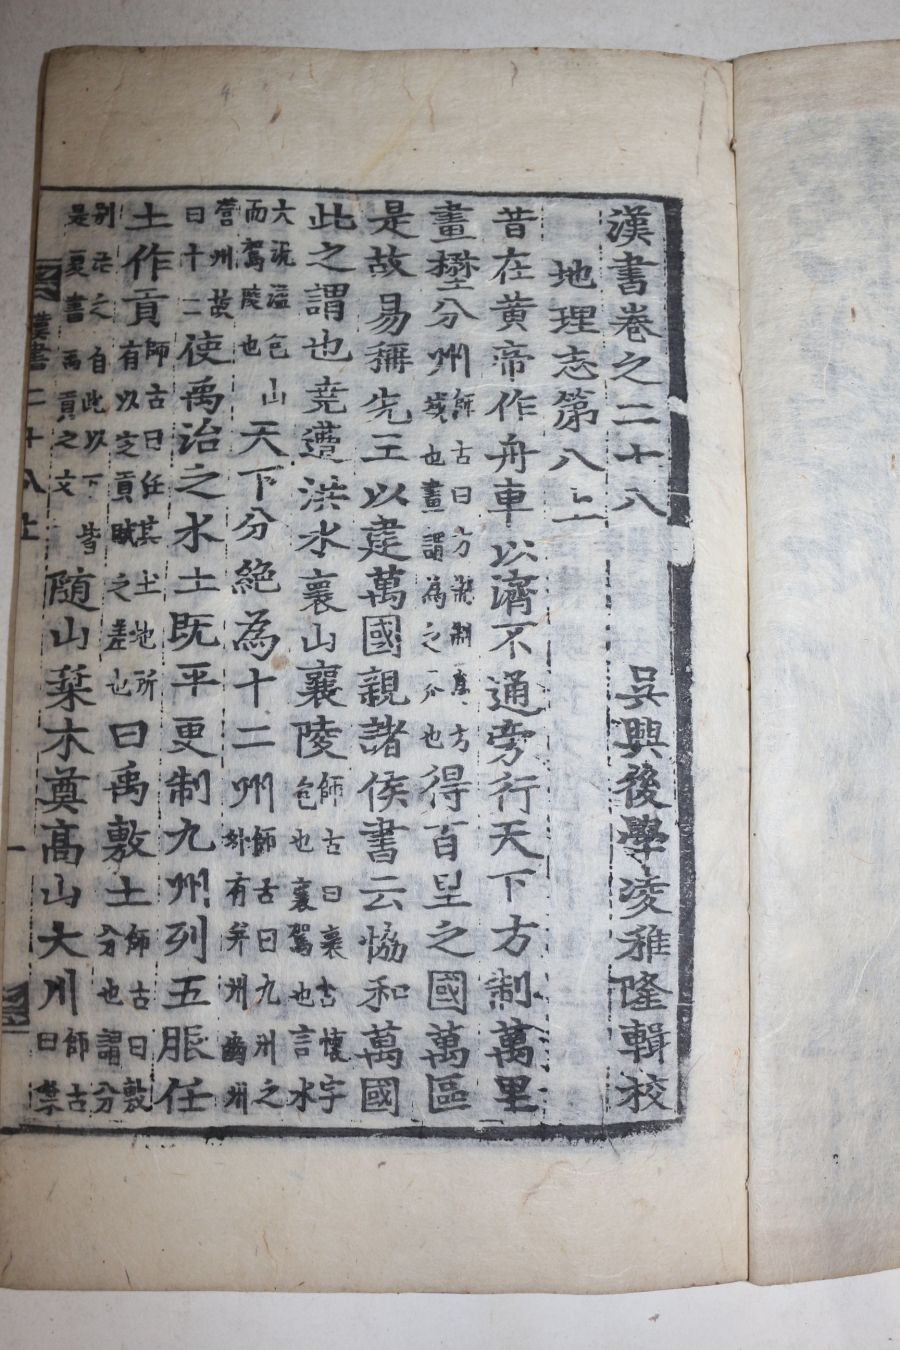 漢書卷之二十八 吳興後學凌稚隆輯校
地理志第八上
昔在黃帝作舟車以濟不通旁行天下方制萬里
畫壄分州師古曰方制制為方域也畫謂為之界也得百里之國萬區
是故易稱先王以建萬國親諸侯書云協和萬國
此之謂也堯遭洪水襄山襄陵師古曰襄古懷字包也襄駕也言水
大汎溢包山而駕陵也天下分絕為十二州師古曰九州之外有并州幽州
營州故曰十二使禹治之水土既平更制九州列五服任
土作貢師古曰任其土地所有以定貢賦之差也曰禹敷土師古曰敷分也謂分
別治之自此以下皆是夏書禹貢之文隨山栞木奠高山大川師古曰栞
漢書二十八上 一